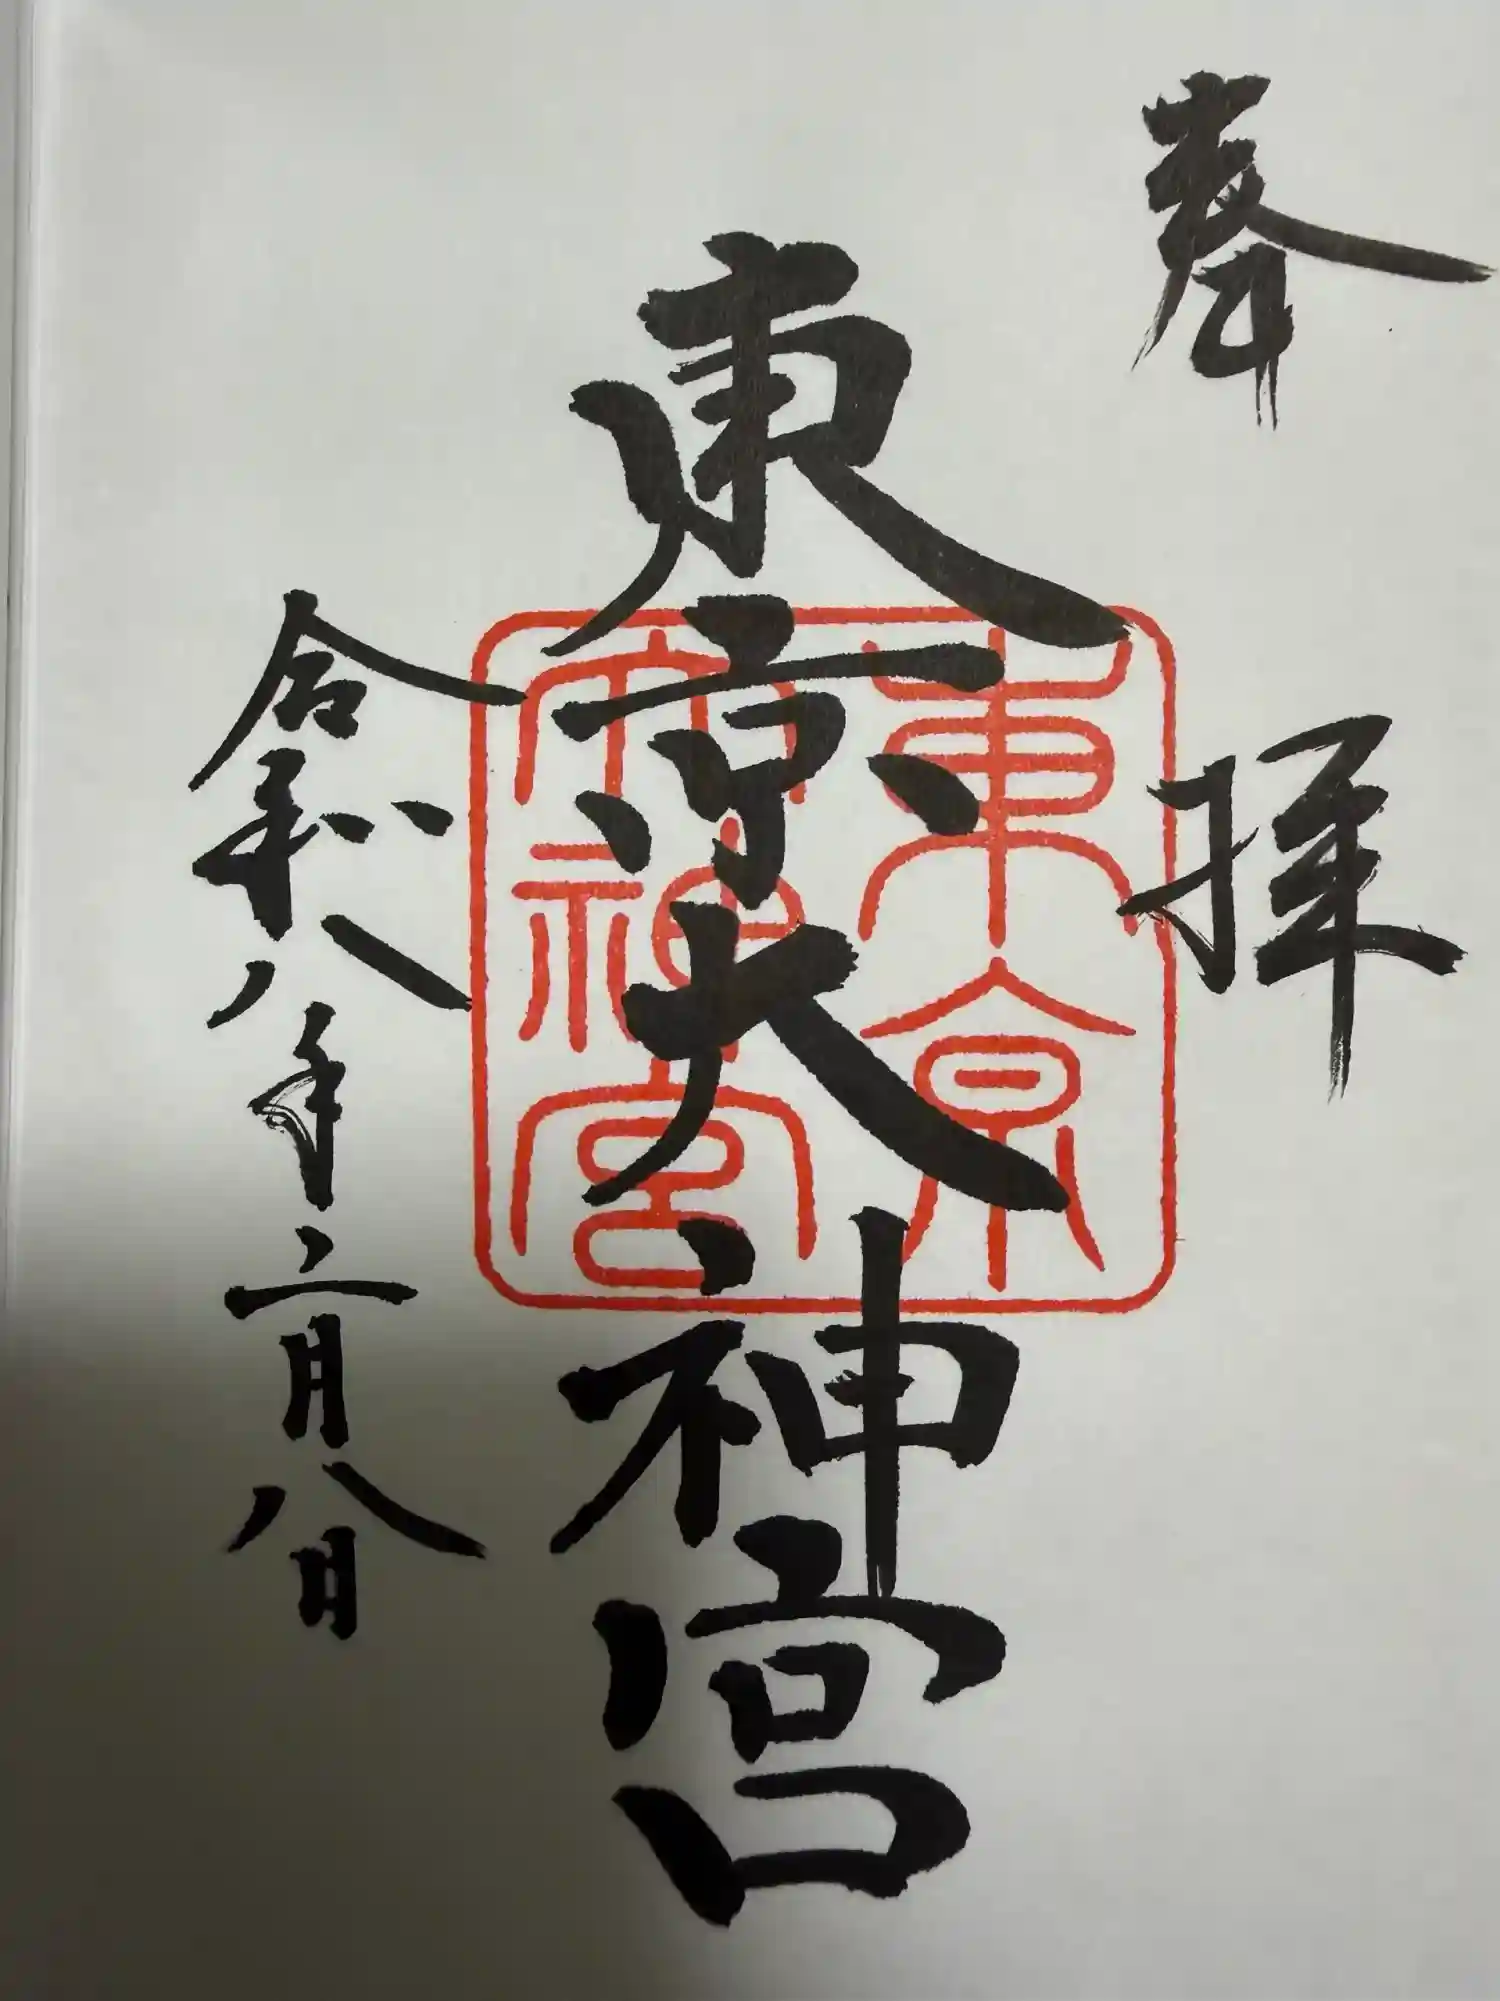 奉拝
東京大神宮
東京大神宮
令和八年二月八日